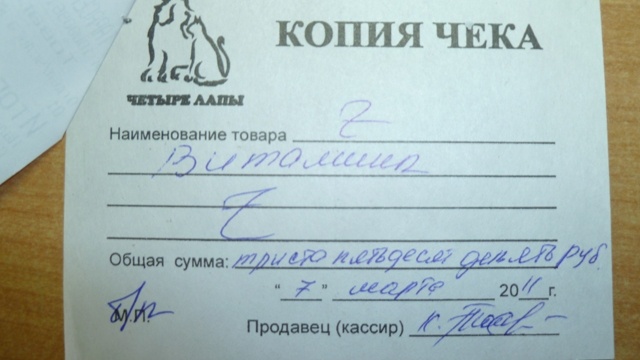 КОПИЯ ЧЕКА
ЧЕТЫРЕ ЛАПЫ
Наименование товара
Витамины
Общая сумма: триста пятьдесят девять руб
"7" марта 2011г.
М.П.
Продавец (кассир)